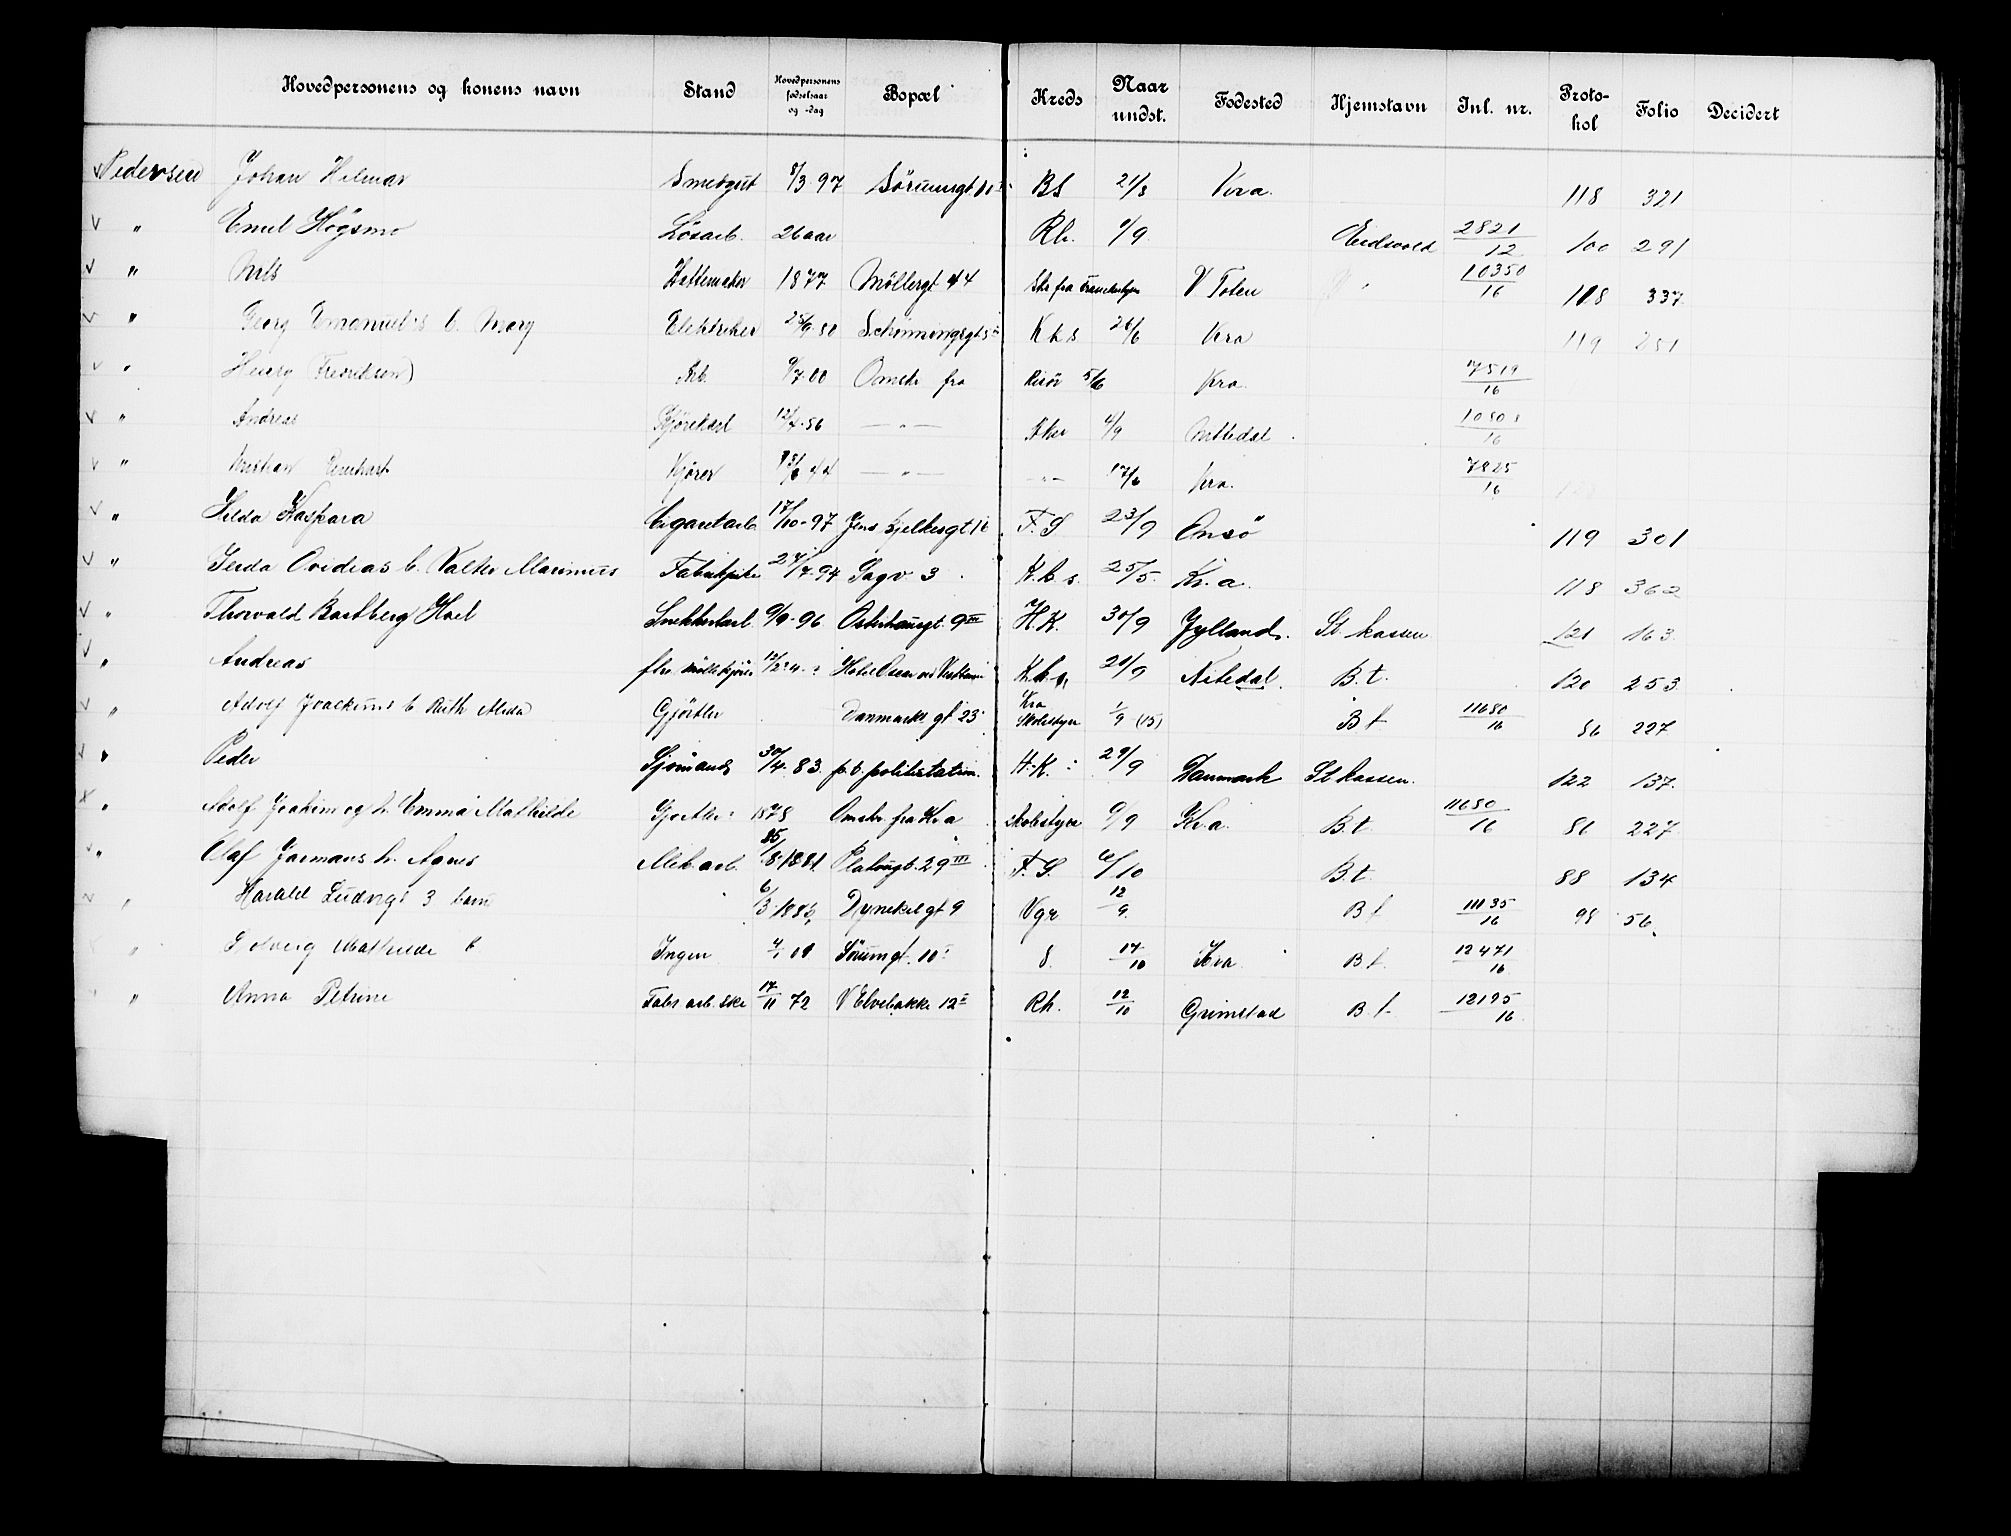 Hovedpersonens og konens navn Stand Hovedpersonens fødselsaar og -dag Bopæl Kreds Naar undst. Fødested Hjemstavn Inl. nr. Protokol Folio Decidert
Pedersen Johan Hilmar Smedgut 8/3 97 Sörumgt BS 21/8 Kra. 118 321
" Emil Högsmo Lösarb. 26 aar Rh. 1/9 Eidsvold 2821/12 100 291
" Nils Hattemaker 1877 Möllergt 44 Skr fra V Toten 10350/16 118 337
" Georg Emanuel's b. Mary Elektriker 25/9 80 Schönningsgt 5 K b s 26/6 Kra 119 251
" Henry (Fredriksen) Arb. 9/7 00 Omskr fra Risör 5/6 Kra. 7519/16
" Andreas Kjörekarl 12/4-56 — " — Aker 4/9 Nittedal 10808/16
" Kristian Kjörer 44 — " — — " — 17/6 Kra. 7825/16
" Hilda Kaspara Cigaretarb 17/10-97 Jens Bjelkesgt 16 F. S 23/9 Onsö 119 301
" Gerda Ovidias b. Valter Marinius Fabrikpike 24/7-94 Sagv. 3 K. b. s. 25/5. Kr. a. 118 362
" Thorvald Bastberg Hoel Snekkerlærl. 9/9-96 Osterhausgt. 9 III H. K. 30/9 Jylland. St. kassen 121 163.
" Andreas Hotel Oscar K. b. s. 20/9 Nitedal. B. t. 120 253
" Adolf Joackims b. Ruth Alida Gjörtler Danmarks gt 23 Kra Skolestyre 1/9 (15) B t 11680/16 86 227
" Peder Sjömand 30/4-83. p. t. politistation. H. K. 29/9 Danmark St kassen. 122 137.
" Adolf Joakim og h. Emma Mathilde Gjörtler 1878 Omskr. fra Kr a Skolestyre 9/9 Kr. a. B. t. 11680/16 86 227
" Olaf Jarmans h. Agnes Mek arb. 25/8-1881 Platougt. 29 III F. S. 6/10 B. t. 88 134
" Harald Ludvigs 3 barn 6/3-188 Dynekilgt 9 Vgr 12/9 B t 11135/16 98 56.
" Solveig Mathilde b Ingen 01 Sörumgt. 10 S. 17/10 Kra B t. 12471/16
" Anna Petrine Fabr arb. ske 17/11 72 V Elvebakke 12 Rh. 12/10 Grimstad B t 12195/16.